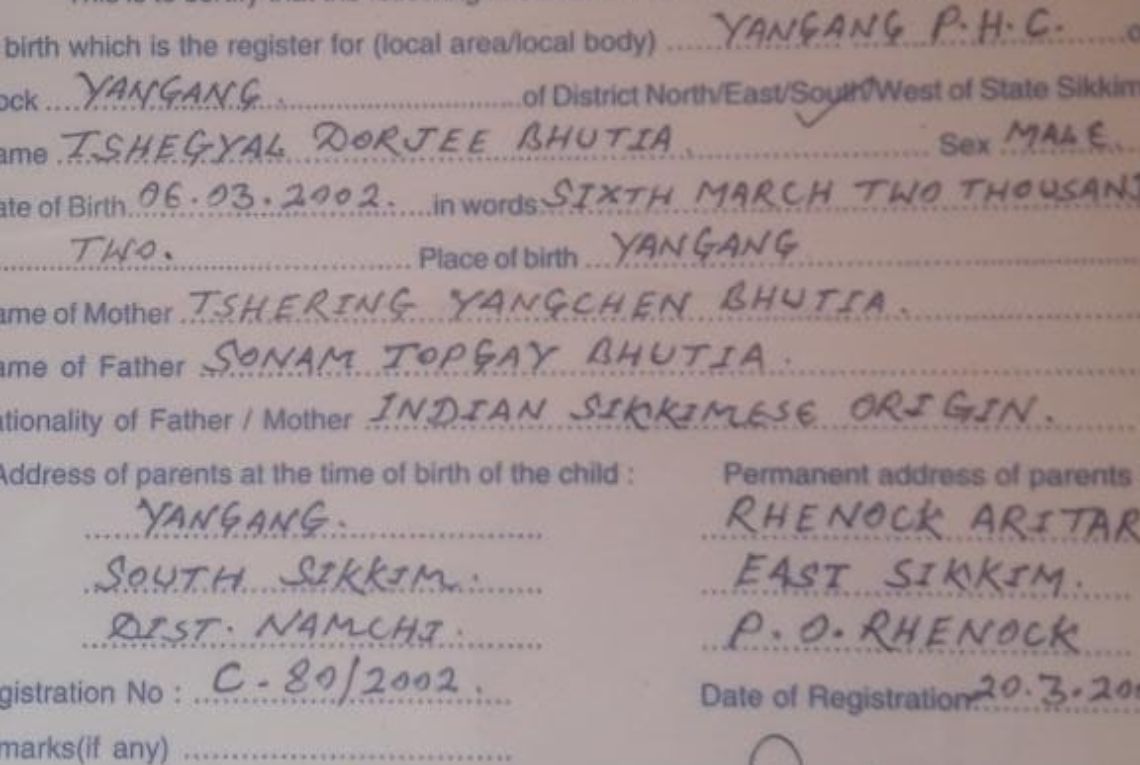 birth which is the register for (local area/local body) ......YANGANG P.H.C.
ock ....YANGANG. ........................of District North/East/South/West of State Sikkim
ame .TSHEGYAL DORJEE BHUTIA. ........................ Sex MALE.
ate of Birth.06.03.2002. ....in words.SIXTH MARCH TWO THOUSAN
........TWO. ........................ Place of birth ...YANGANG
ame of Mother .TSHERING YANGCHEN BHUTIA.
ame of Father .SONAM TOPGAY BHUTIA.
ationality of Father / Mother .INDIAN SIKKIMESE ORIGIN.
Address of parents at the time of birth of the child : Permanent address of parents
YANGANG. RHENOCK ARITAR
SOUTH SIKKIM. EAST SIKKIM.
DIST. NAMCHI. P.O. RHENOCK
gistration No : ..C-80/2002. Date of Registration 20.3.20
marks(if any) ........................